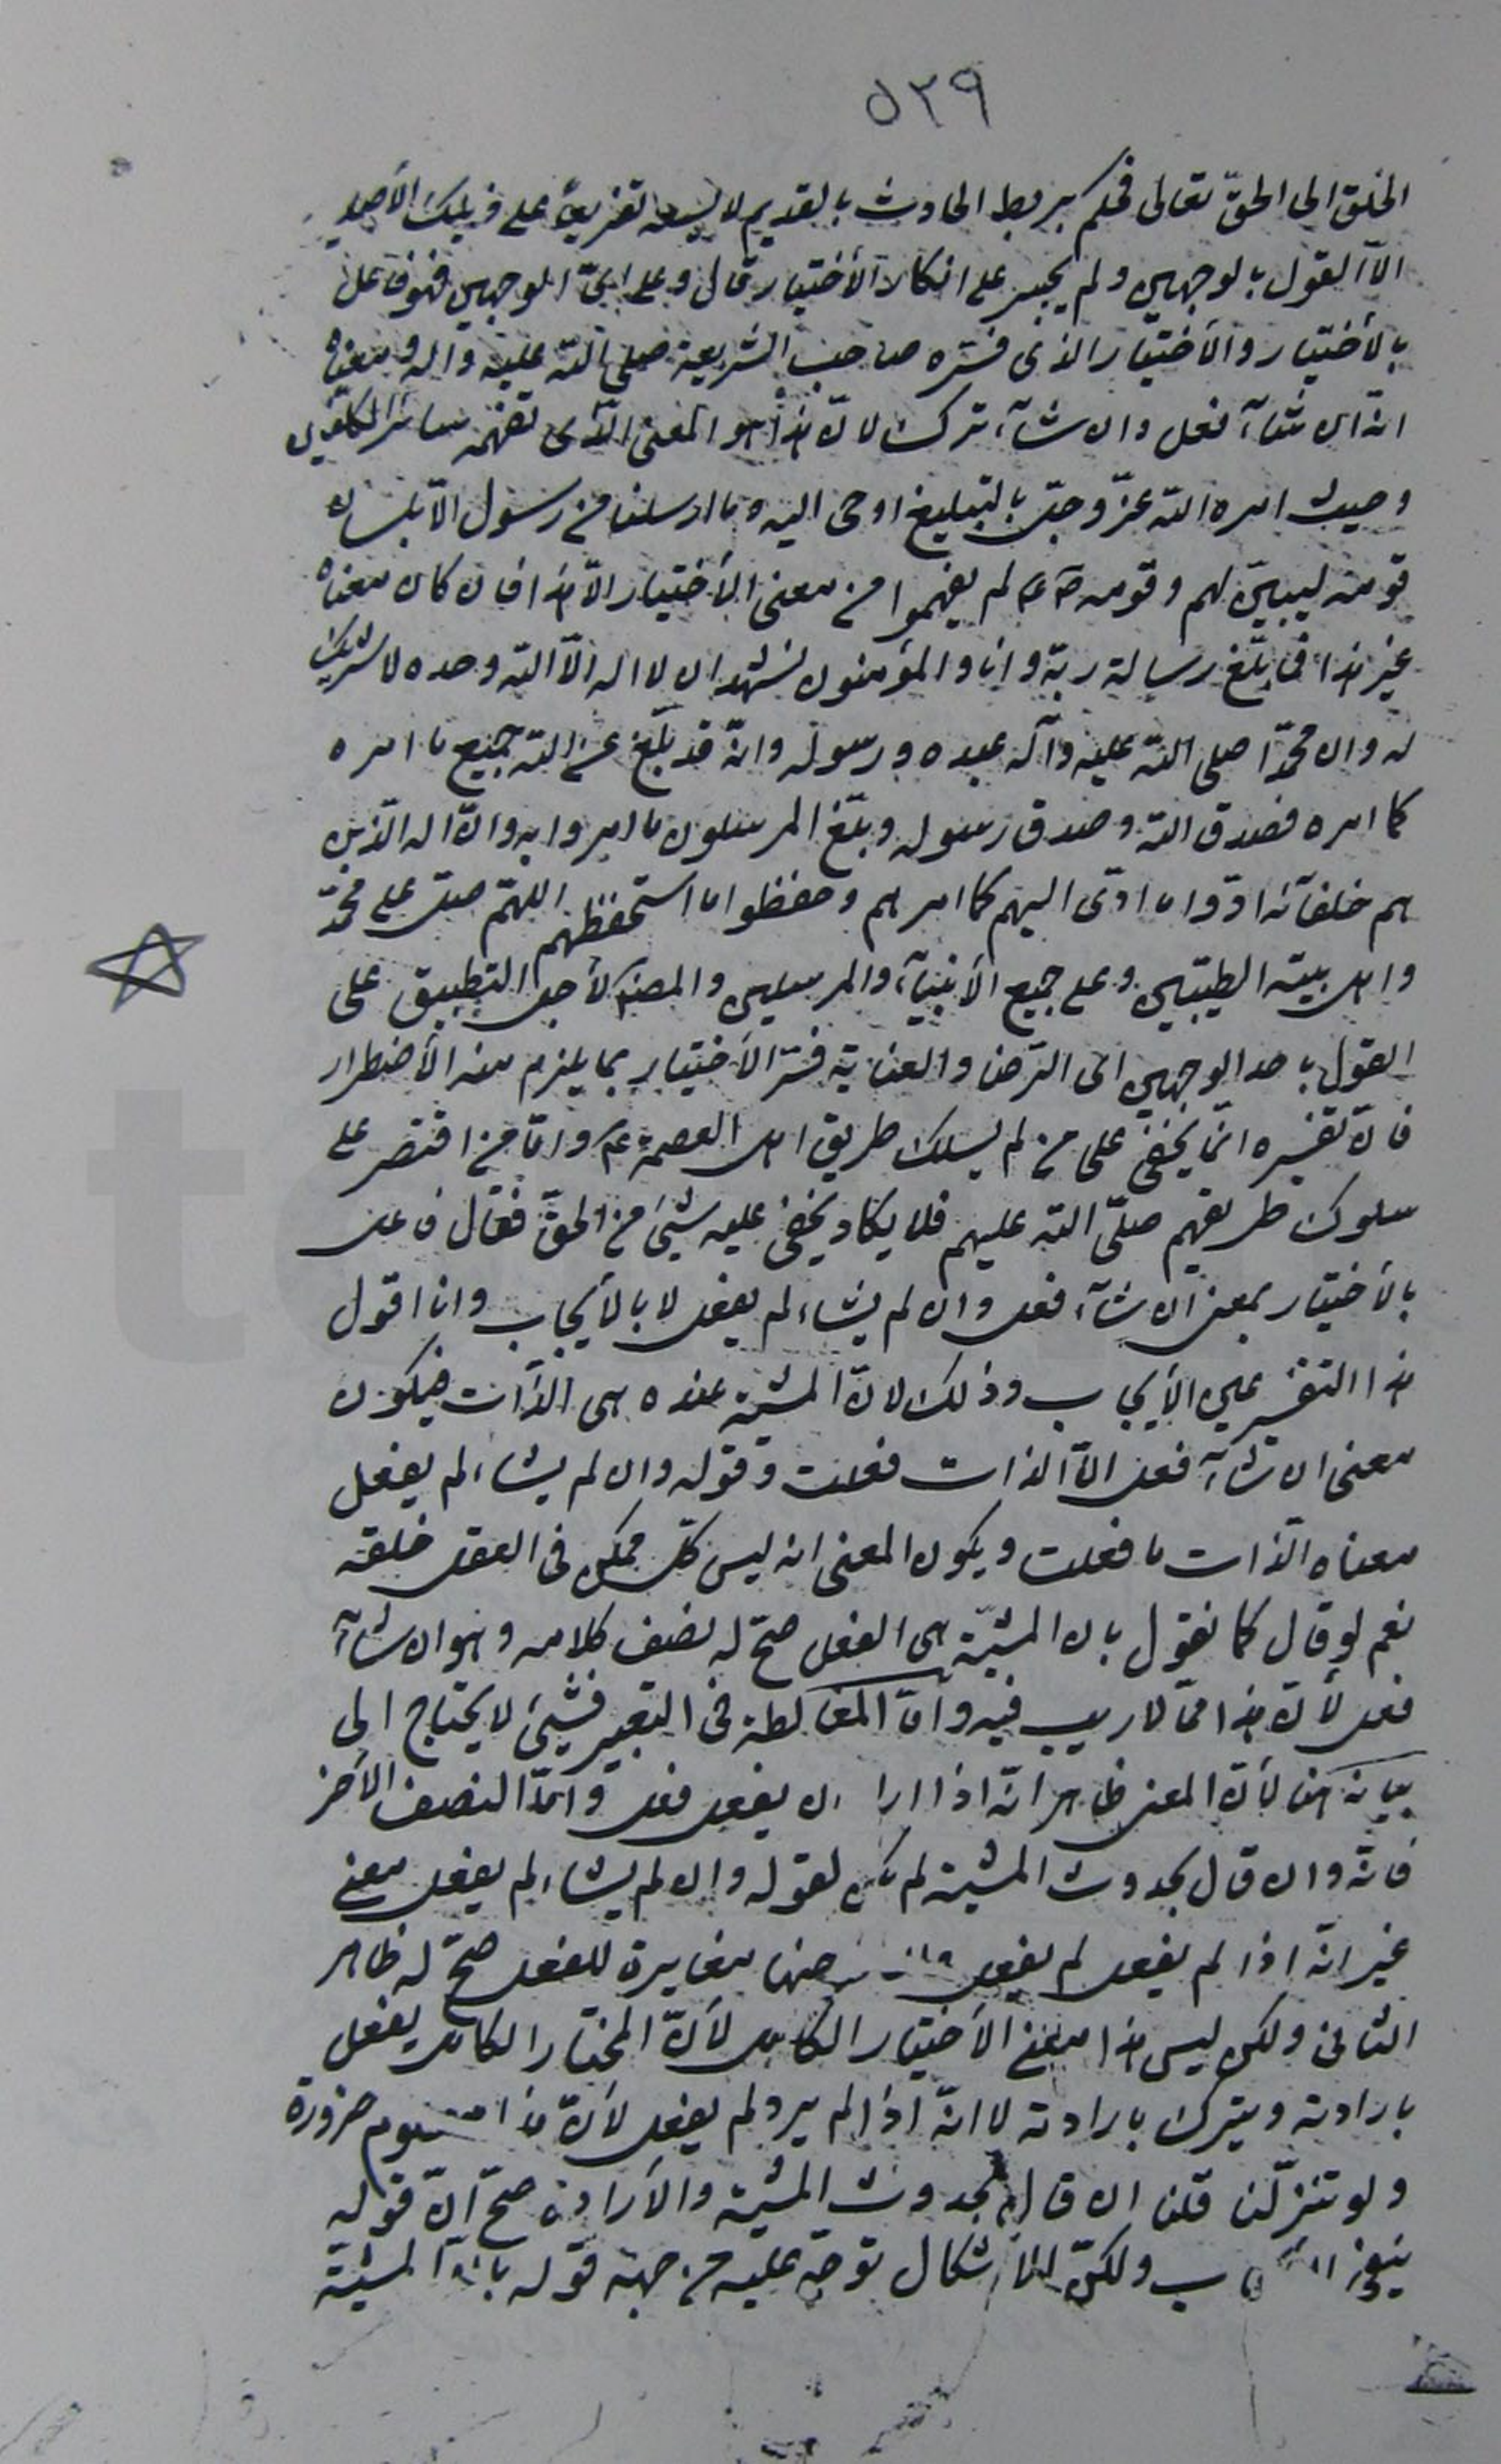 ٥٣٩
الخلق الى الحقّ تعالى فحكم بربط الحادث بالقديم لا يسعه تفريعاً على ذينك الأصلين
الّا القول بالوجهين ولم يجسر على انكار الأختيار قال وعلى اىّ الوجهين فهو فاعل
بالأختيار والأختيار الذى فسّره صاحب الشريعة صلى اللّه عليه وآله ومعناه
انّه ان شآء فعل وان شآء ترك لانّ هذا هو المعنى الّذى تفهمه سائر المكلفين
وحيث امره اللّه عزّ وجلّ بالتبليغ اوحى اليه وما ارسلنا من رسول الّا بلسان
قومه ليبيّن لهم وقومه لم يفهموا من معنى الأختيار الّا هذا فان كان معناه
غير هذا فما بلّغ رسالة ربّه وانا والمؤمنون نشهد ان لا اله الّا اللّه وحده لا شريك
له وان محمّداً صلى اللّه عليه وآله عبده ورسوله وانّه قد بلّغ عن اللّه جميع ما امره
كما امره فصدق اللّه وصدق رسوله وبلّغ المرسلون ما امروا به وانّ اله الّذين
هم خلفآئه ادّوا ما ادّى اليهم كما امرهم وحفظوا ما استحفظهم اللهمّ صلّ على محمّد
واهل بيته الطيبين وعلى جميع الأنبيآء والمرسلين والمصنّف لأجل التطبيق على
القول باحد الوجهين اى الرّضا والعناية فسّر الأختيار بما يلزم منه الأضطرار
فانّ تفسيره انّما يخفى على من لم يسلك طريق اهل العصمة ع وامّا من اقتصر على
سلوك طريقهم صلّى اللّه عليهم فلا يكاد يخفى عليه شيئ من الحقّ فقال فاعل
بالأختيار بمعنى ان شآء فعل وان لم يشاء لم يفعل لا بالأيجاب وانا اقول
هذا التفسير عين الأيجاب وذلك لانّ المشيّة عنده هى الذّات فيكون
معنى ان شآء فعل انّ الذات فعلت وقوله وان لم يشاء لم يفعل
معناه الّذات ما فعلت ويكون المعنى انه ليس كلّ ممكن فى العقل خلقه
نعم لو قال كما نقول بان المشيّة هى الفعل صحّ له نصف كلامه وهو ان شآء
فعل لأنّ هذا ممّا لا ريب فيه وامّا المغالطة فى التعبير فشيئ لا يحتاج الى
بيانه هنا لأنّ المعنى ظاهر انّه اذا اراد ان يفعل فعل وامّا النصف الأخر
فانّه وان قال بحدوث المشيّة لم يكن لقوله وان لم يشاء لم يفعل معنى
غير انّه اذا لم يفعل لم يفعل مغايرة للفعل صحّ له ظاهر
الثانى ولكن ليس هذا معنى الأختيار الكامل لأنّ المختار الكامل يفعل
بارادته ويترك بارادته لا انّه اذا لم يرد لم يفعل لأنّ هذا ضرورة
ولو تنزّلنا قلنا ان قال بحدوث المشيّة والأرادة صحّ انّ قوله
ولكنّ الأشكال توجّه عليه من جهة قوله بانّ المشيّة